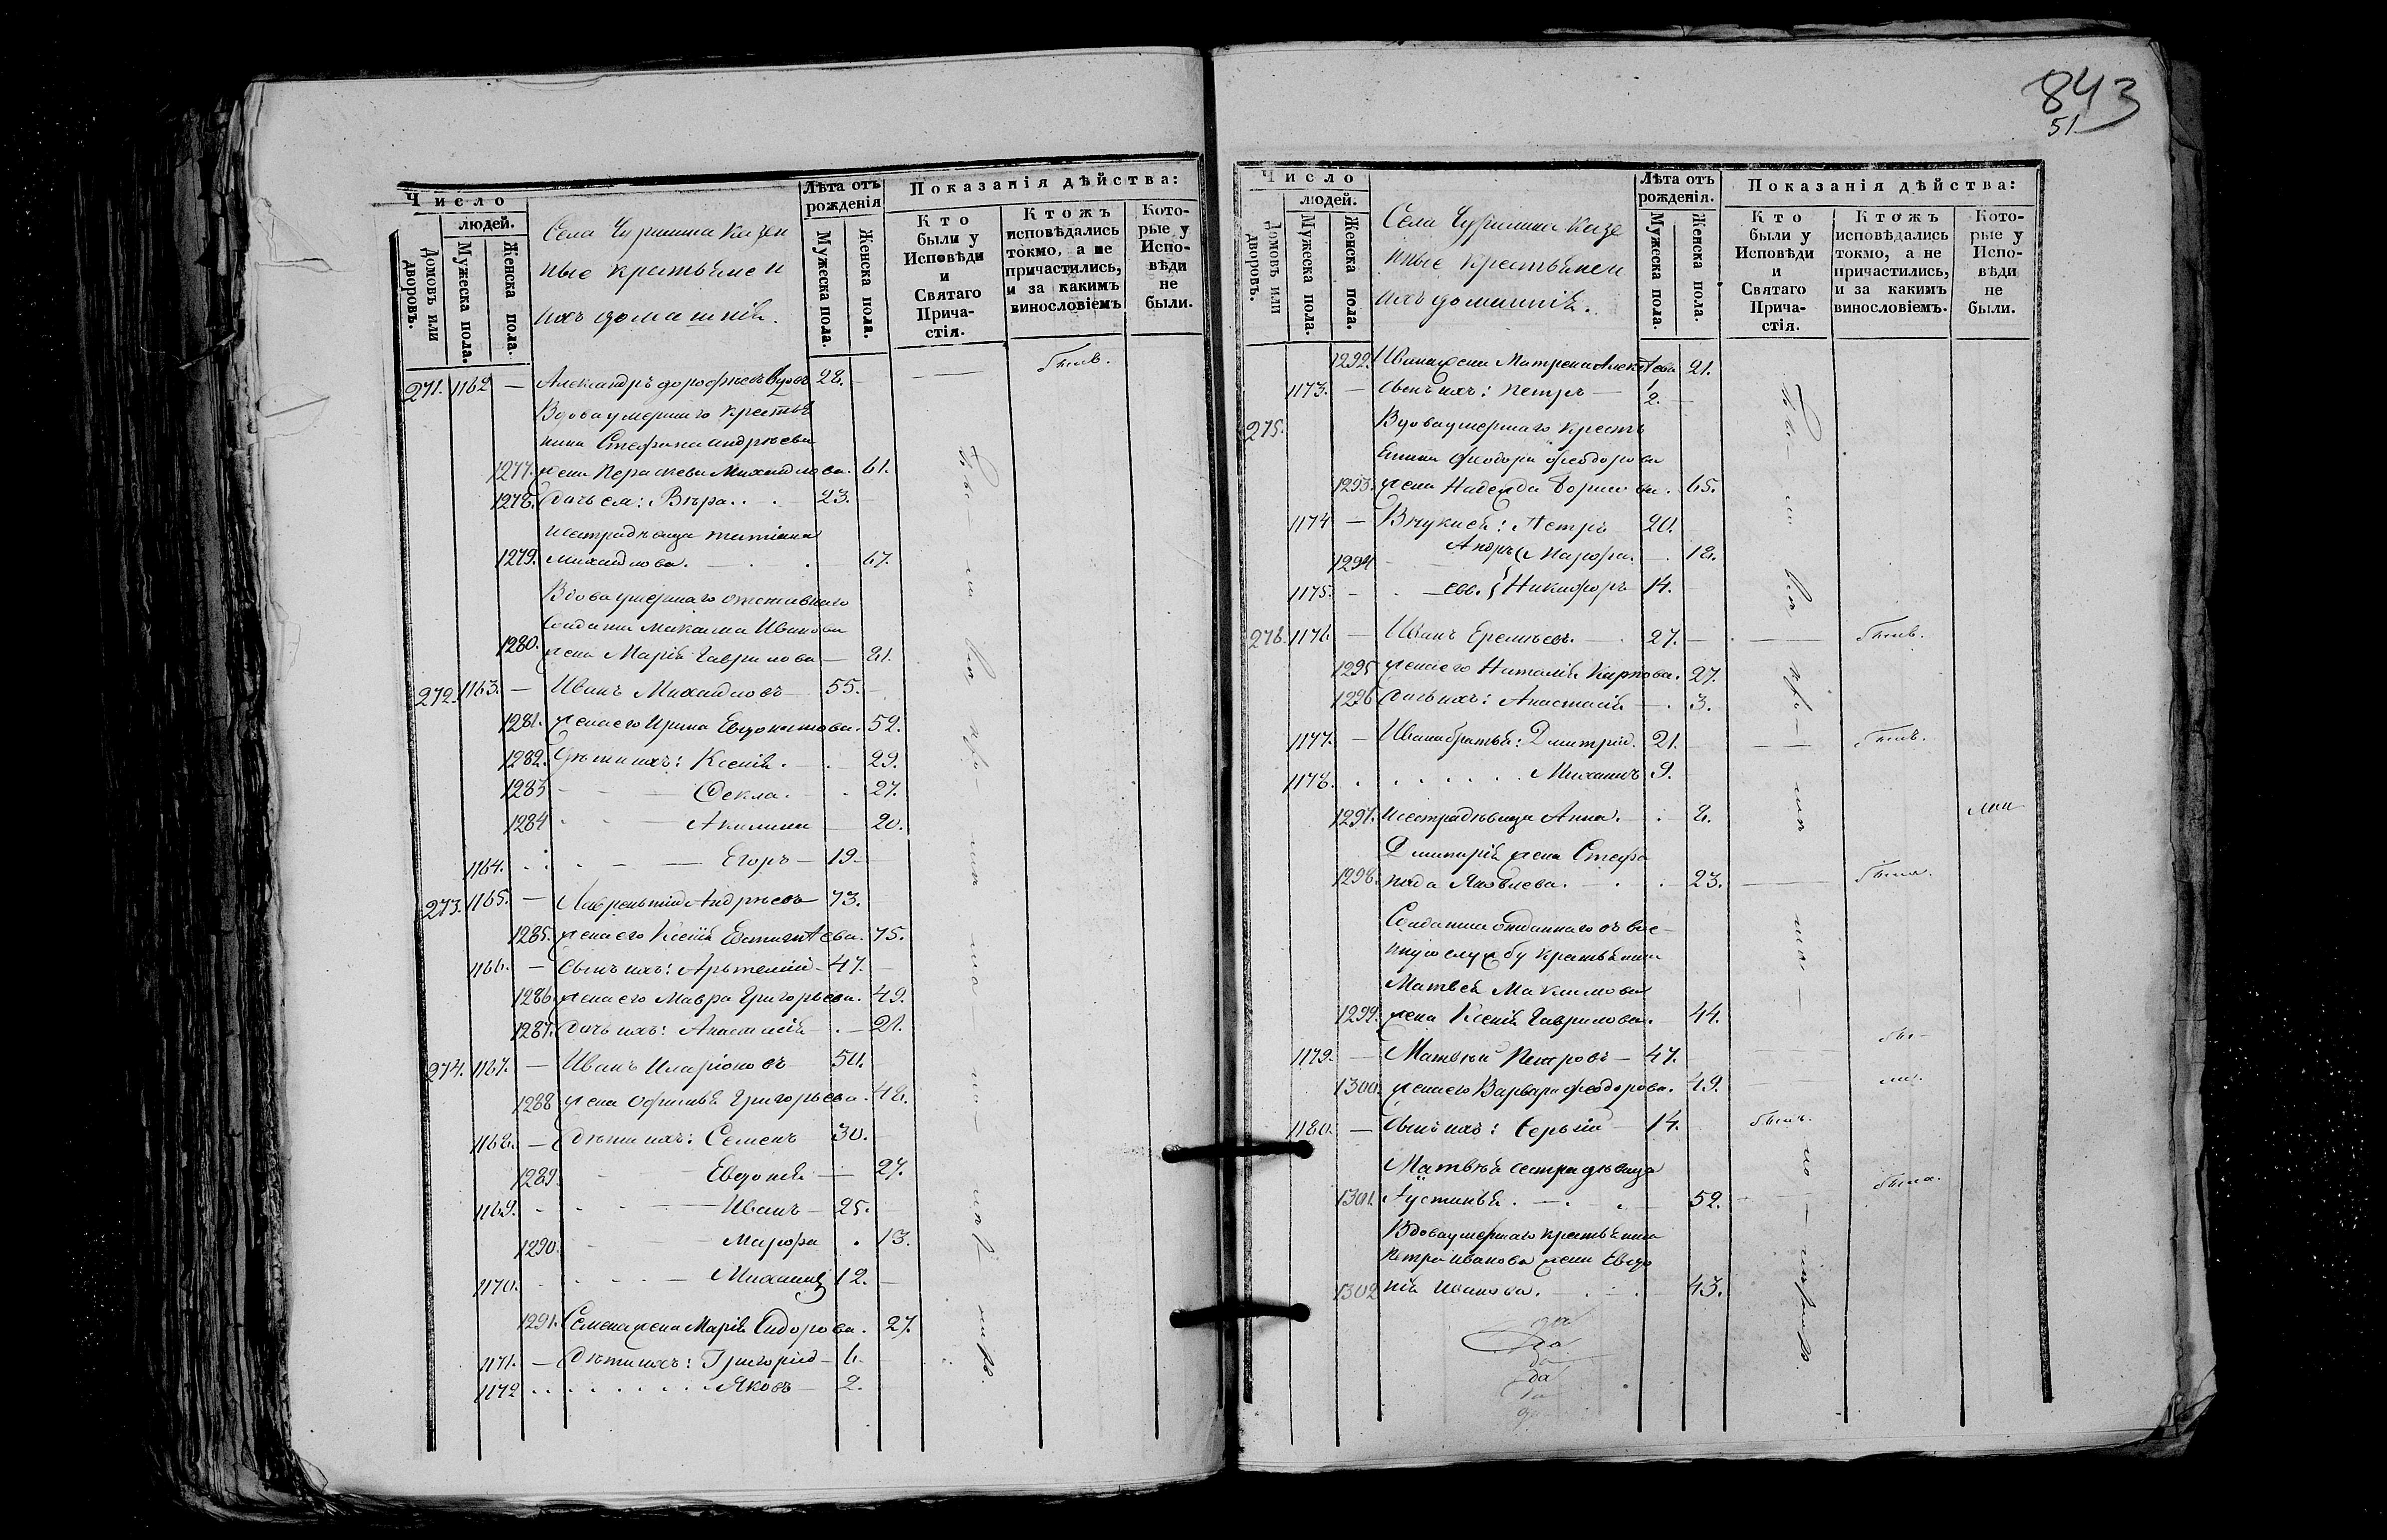 843
51
Число
людей.
Домовъ или дворовъ.
Мужеска пола.
Женска пола.
Села Чуфишина Казен
ные крестьяне и
ихъ домашнія.
Лѣта отъ рожденія
Мужеска пола.
Женска пола.
Показанія дѣйства:
Кто были у Исповѣди и Святаго Прича-стія.
Ктожъ исповѣдались токмо, а не причастились, и за какимъ винословіемъ
Кото-рые у Испо-вѣди не были.
271. 1162 — Александръ Дорофѣевъ Вдовъ 28. — былъ.
Вдова умершаго крестья
нина Стефана Андрѣева
1277. жена Параскева Михайлова. 61.
1278. дочь ея: Вѣра. 23.
и сестра дѣвица Татіана
1279. Михайлова. 67.
Вдова умершаго отставнаго
Солдата Максима Иванова
1280. жена Марія Гаврилова — 81.
272. 1163. — Иванъ Михайловъ 55.
1281. жена его Ирина Евдокимова. 52.
1282. Дѣти ихъ: Ксенія. 29.
1283 Фекла. 27.
1284 Акилина 20.
1164. Егоръ — 19.
273. 1165. — Лаврентій Андрѣевъ 73.
1285. жена его Ксенія Евстигнѣева. 75.
1166. — сынъ ихъ: Артемій — 47.
1286. жена его Мавра Григорьева. 49.
1287. дочь ихъ: Анастасія — 21.
274. 1167. — Иванъ Иларіоновъ 50.
1288 жена Офимья Григорьева. 48.
1168. — дѣти ихъ: Семенъ 30.
1289. Евдокія — 27.
1169. Иванъ — 25.
1290. Марфа 13.
1170. Михаилъ 12.
1291. Семена жена Марія Сидорова. 27.
1171. — дѣти ихъ: Григорій — 6.
1172 Яковъ — 2.
Число
людей.
Домовъ или дворовъ.
Мужеска пола.
Женска пола.
Села Чуфишина Казе
нные крестьяне и
ихъ домашнія.
Лѣта отъ рожденія.
Мужеска пола.
Женска пола.
Показанія дѣйства:
Кто были у Исповѣди и Святаго Прича-стія.
Ктожъ исповѣдались токмо, а не причастились, и за какимъ винословіемъ.
Кото-рые у Испо-вѣди не были.
1292. Ивана жена Матрена Алексѣева 21.
1173. — сынъ ихъ: Петръ — 1/2.
275. Вдова умершаго кресть
янина Феодора Феодорова
1293. жена Надежда Борисова. 65.
1174 — Внуки ея: Петръ 20.
1294 Андрѣ Марфа. 18.
1175. евы. Никифоръ 14.
276. 1176 — Иванъ Еремѣевъ. 27. былъ.
1295 жена его Наталія Карпова. 27.
1296 дочь ихъ: Анастасія 3.
1177. — Ивана братья: Дмитрій. 21. былъ.
1178. Михаилъ 9.
1297. и сестра дѣвица Анна. 8.
Дмитрія жена Стефа
1298. нида Яковлева. 23. была.
Солдатка отданнаго въ вое-
нную службу крестьянина
Матвея Максимова
1299. жена Ксенія Гаврилова. 44.
1179. — Матвѣй Петровъ — 47. бы-
1300. жена его Варвара Феодорова. 49. ли.
1180. — сынъ ихъ: Сергій 14. былъ.
Матвѣя сестра дѣвица
1301. Іустинья. 52. была.
Вдова умершаго крестьянина
Петра Иванова жена Евдо
1302 кія Иванова. 43.
да
да
да
да
да